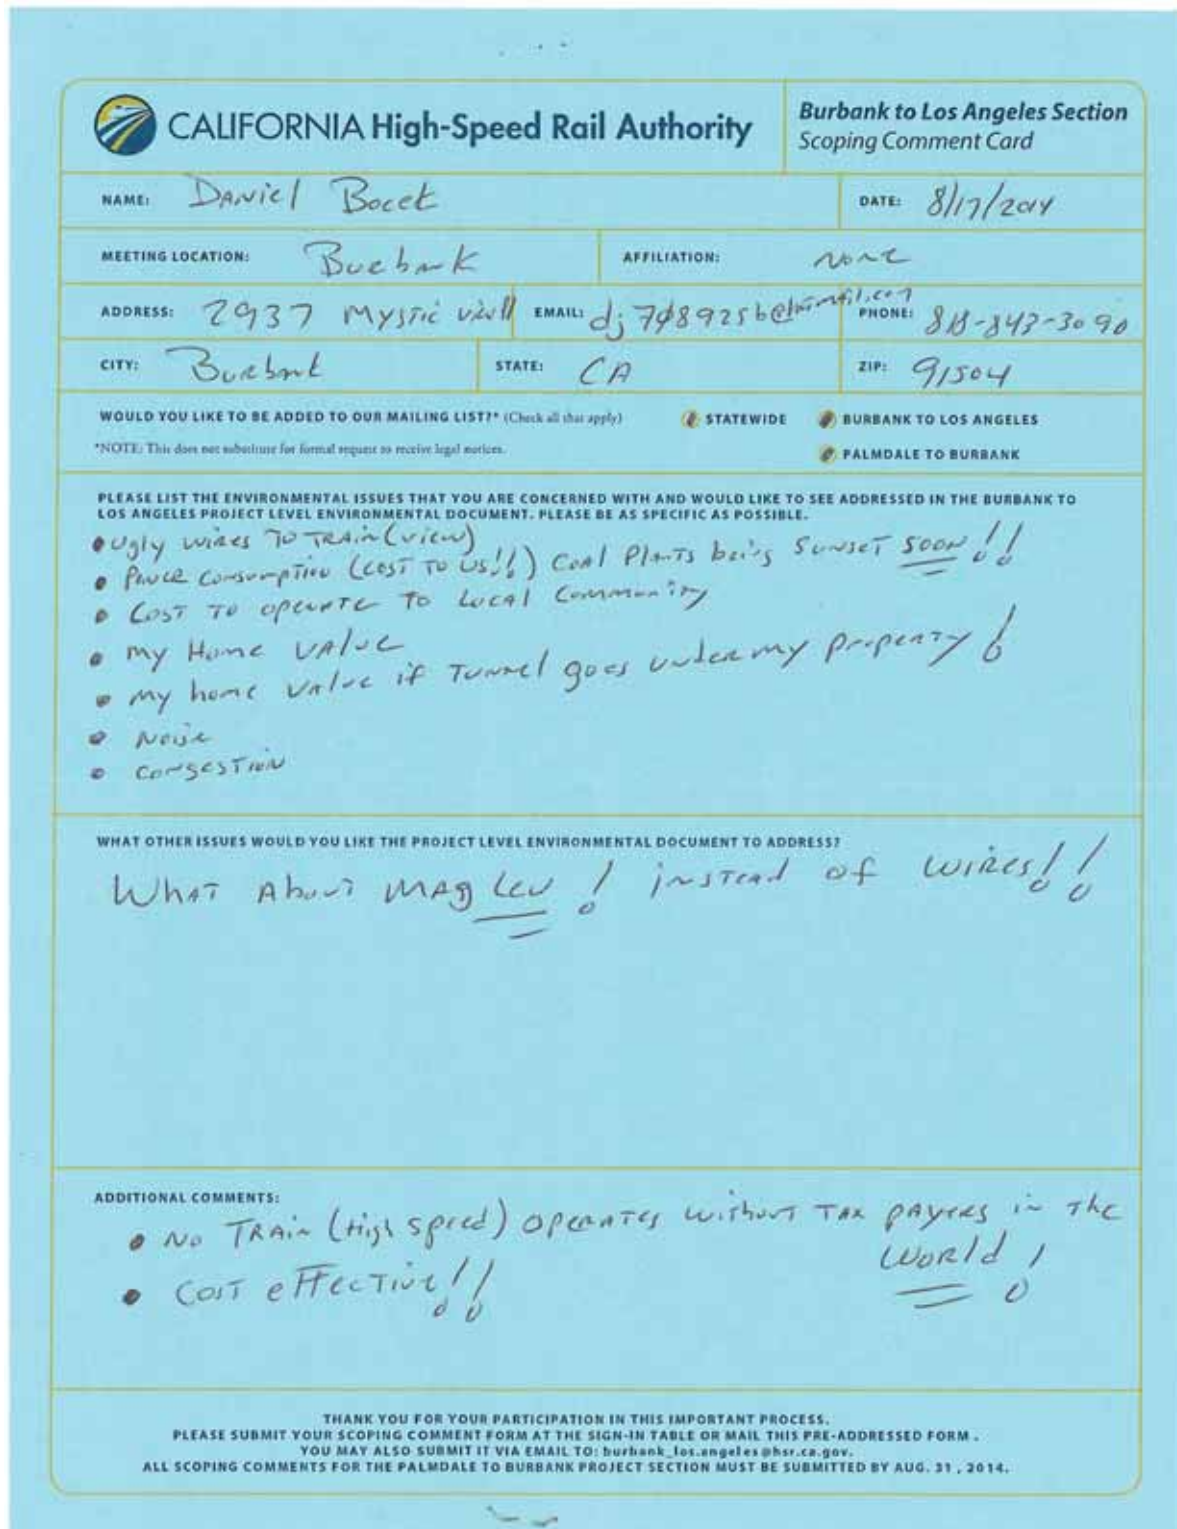 CALIFORNIA High-Speed Rail Authority
Burbank to Los Angeles Section
Scoping Comment Card
NAME: Daniel Bocek
DATE: 8/17/2014
MEETING LOCATION: Burbank
AFFILIATION: none
ADDRESS: 2937 Mystic
EMAIL:
PHONE: 818-843-3090
CITY: Burbank
STATE: CA
ZIP: 91504
WOULD YOU LIKE TO BE ADDED TO OUR MAILING LIST?* (Check all that apply)
STATEWIDE
BURBANK TO LOS ANGELES
*NOTE: This does not substitute for formal request to receive legal notices.
PALMDALE TO BURBANK
PLEASE LIST THE ENVIRONMENTAL ISSUES THAT YOU ARE CONCERNED WITH AND WOULD LIKE TO SEE ADDRESSED IN THE BURBANK TO
LOS ANGELES PROJECT LEVEL ENVIRONMENTAL DOCUMENT. PLEASE BE AS SPECIFIC AS POSSIBLE.
• Ugly wires To TRAIN (view)
• Power Consumption (COST TO US!!) Coal Plants being Sunset SOON!!
• COST TO operate To LOCAL Community
• My Home VALUE
• My home Value if Tunnel goes under my property!
• Noise
• CONGESTION
WHAT OTHER ISSUES WOULD YOU LIKE THE PROJECT LEVEL ENVIRONMENTAL DOCUMENT TO ADDRESS?
WHAT About MAg Lev! instead of WIRES!!
ADDITIONAL COMMENTS:
• No TRAIN (High Speed) OPERATES without TAX PAYERS in The
WORLD!
• COST EFFECTIVE!!
THANK YOU FOR YOUR PARTICIPATION IN THIS IMPORTANT PROCESS.
PLEASE SUBMIT YOUR SCOPING COMMENT FORM AT THE SIGN-IN TABLE OR MAIL THIS PRE-ADDRESSED FORM .
YOU MAY ALSO SUBMIT IT VIA EMAIL TO: burbank_los.angeles@hsr.ca.gov.
ALL SCOPING COMMENTS FOR THE PALMDALE TO BURBANK PROJECT SECTION MUST BE SUBMITTED BY AUG. 31 , 2014.